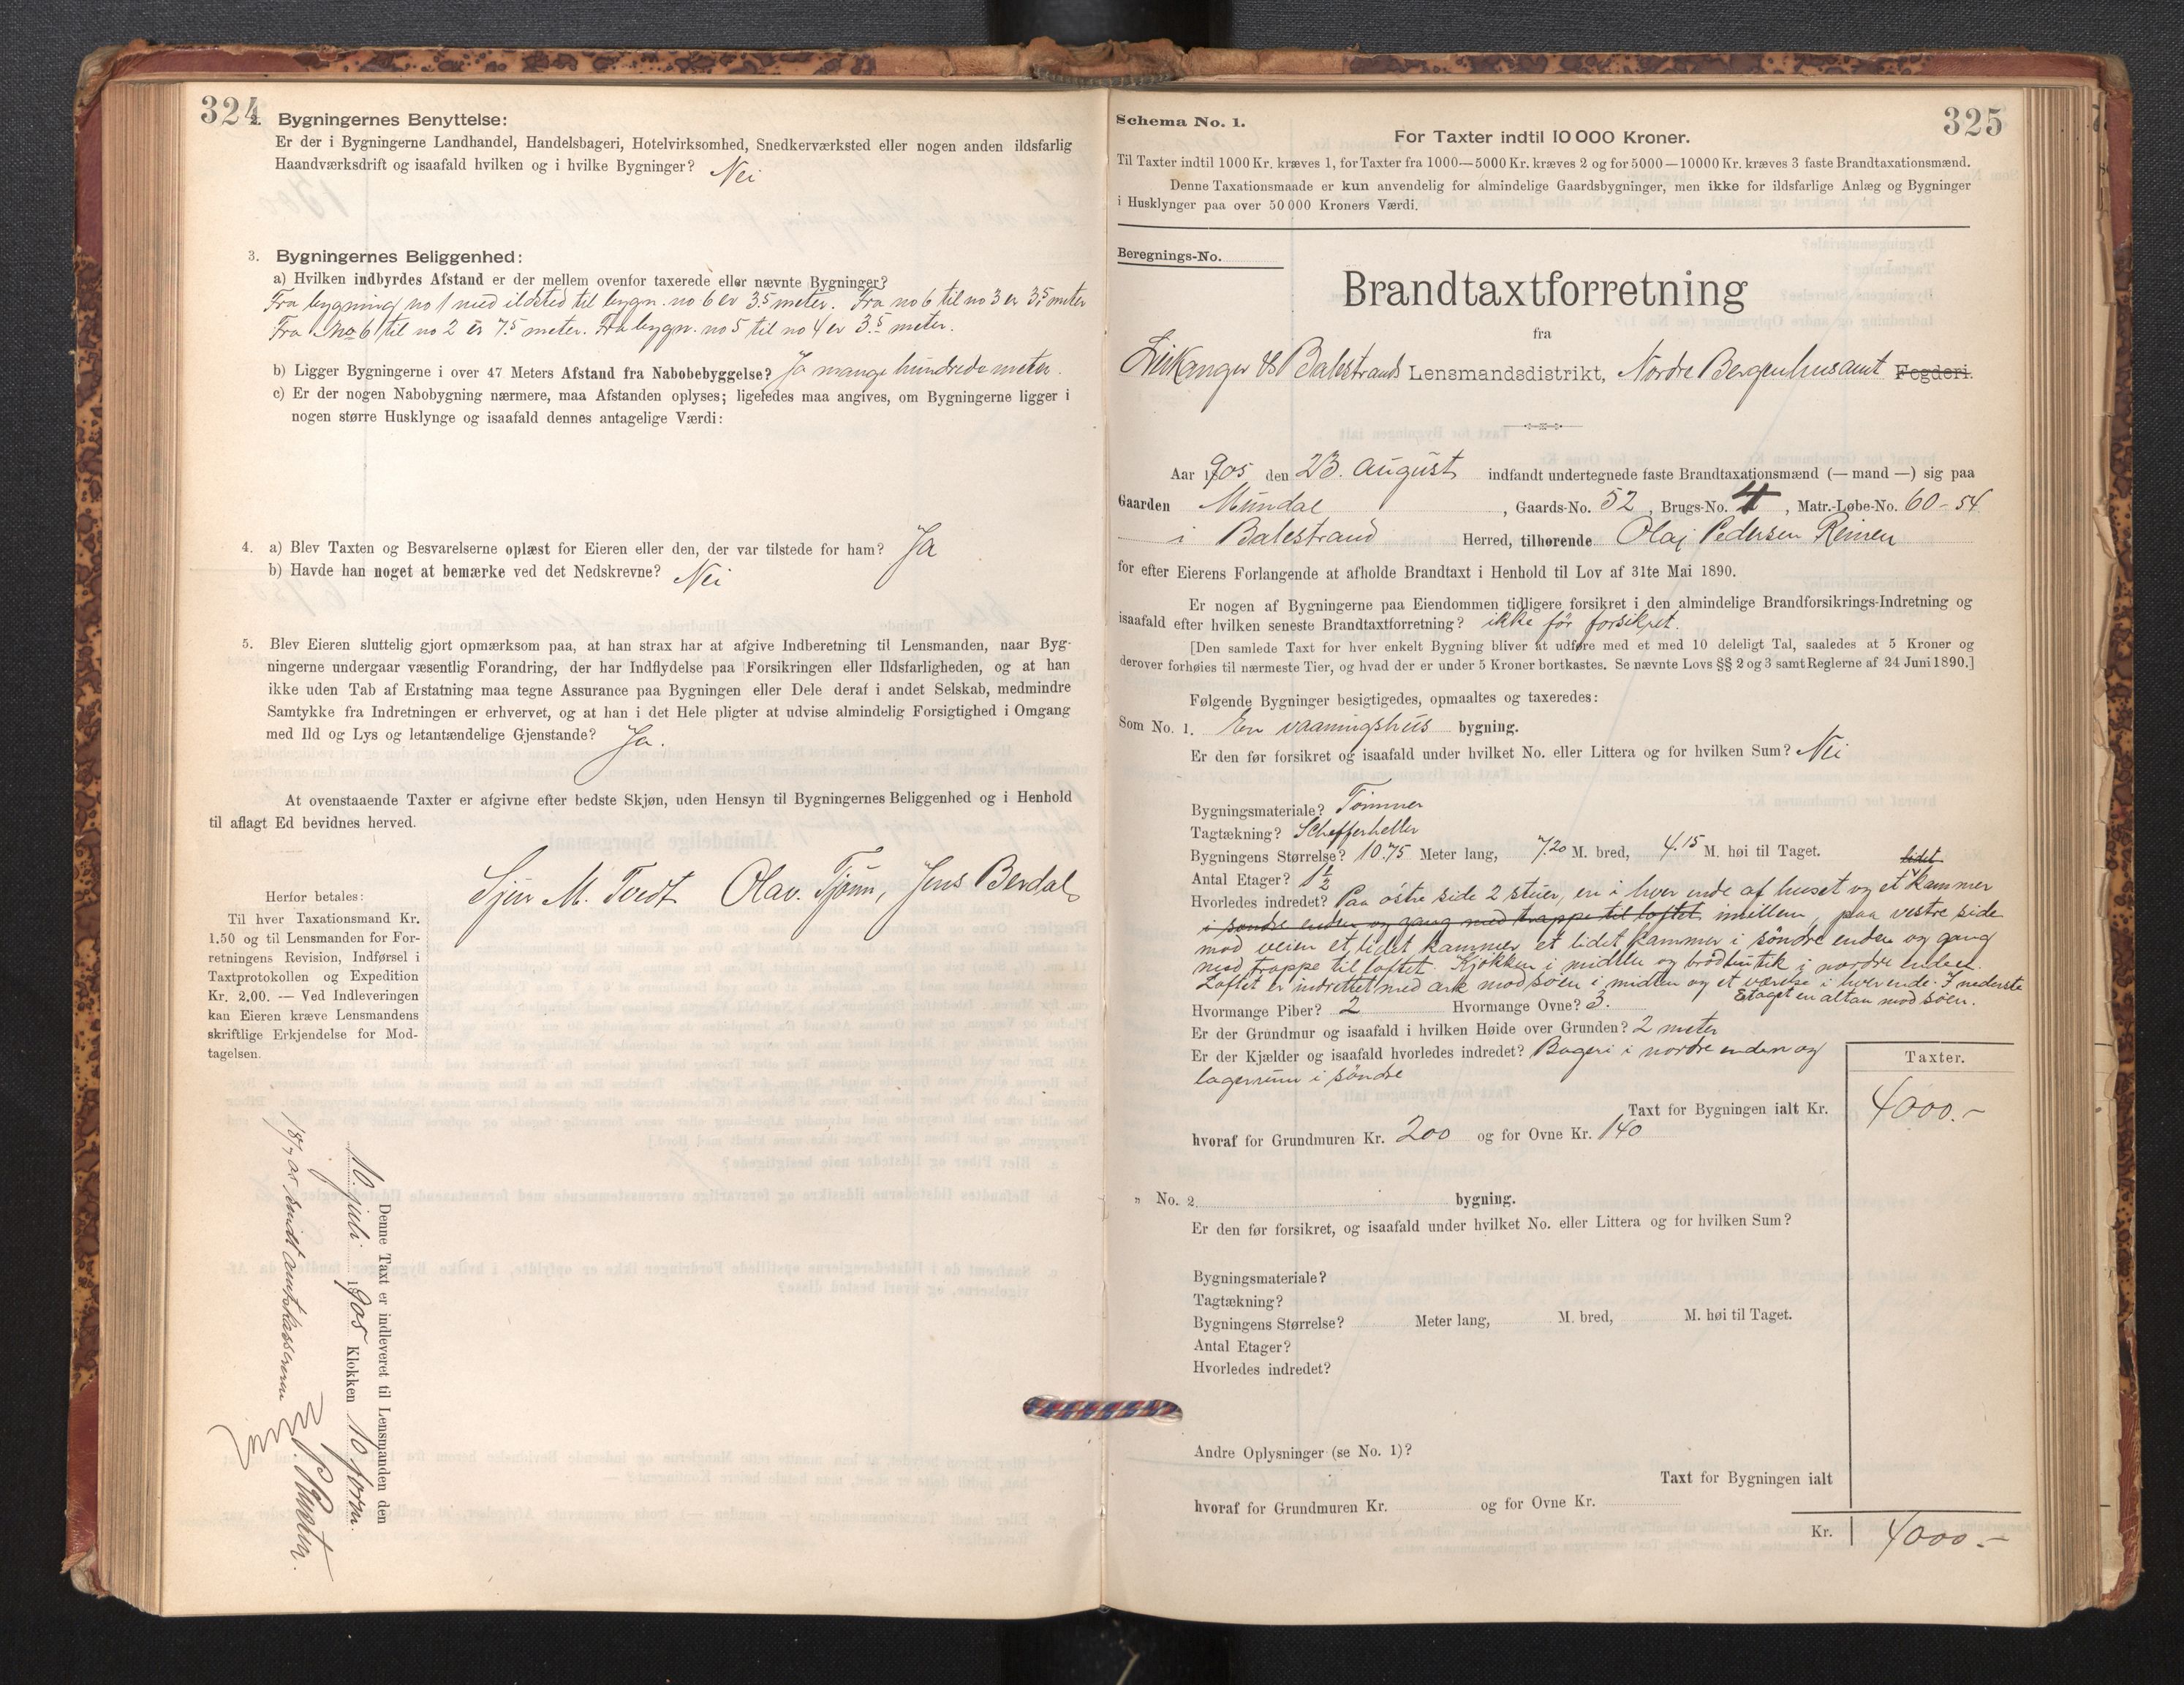 324
2. Bygningernes Benyttelse:
Er der i Bygningerne Landhandel, Handelsbageri, Hotelvirksomhed, Snedkerværksted eller nogen anden ildsfarlig
Haandværksdrift og isaafald hvilken og i hvilke Bygninger? Nei
3. Bygningernes Beliggenhed:
a) Hvilken indbyrdes Afstand er der mellem ovenfor taxerede eller nævnte Bygninger?
Fra bygning no 1 med ildsted til bygn. no 6 er 3.5 meter. Fra no 6 til no 3 er 3.5 meter
Fra no 6 til no 2 er 7.5 meter. Fra bygn. no 5 til no 4 er 3.5 meter.
b) Ligger Bygningerne i over 47 Meters Afstand fra Nabobebyggelse? Ja mange hundrede meter.
c) Er der nogen Nabobygning nærmere, maa Afstanden oplyses; ligeledes maa angives, om Bygningerne ligger i
nogen større Husklynge og isaafald dennes antagelige Værdi:
4. a) Blev Taxten og Besvarelserne oplæst for Eieren eller den, der var tilstede for ham? Ja
b) Havde han noget at bemærke ved det Nedskrevne? Nei
5. Blev Eieren sluttelig gjort opmærksom paa, at han strax har at afgive Indberetning til Lensmanden, naar Byg-
ningerne undergaar væsentlig Forandring, der har Indflydelse paa Forsikringen eller Ildsfarligheden, og at han
ikke uden Tab af Erstatning maa tegne Assurance paa Bygningen eller Dele deraf i andet Selskab, medmindre
Samtykke fra Indretningen er erhvervet, og at han i det Hele pligter at udvise almindelig Forsigtighed i Omgang
med Ild og Lys og letantændelige Gjenstande? Ja.
At ovenstaaende Taxter er afgivne efter bedste Skjøn, uden Hensyn til Bygningernes Beliggenhed og i Henhold
til aflagt Ed bevidnes herved.
Sjur M. Tvedt Olav. Tjønn, Jens Berdal
Herfor betales:
Til hver Taxationsmand Kr.
1.50 og til Lensmanden for For-
retningens Revision, Indførsel i
Taxtprotokollen og Expedition
Kr. 2.00. — Ved Indleveringen
kan Eieren kræve Lensmandens
skriftlige Erkjendelse for Mod-
tagelsen.
Denne Taxt er indleveret til Lensmanden den
10. juli 1905 Klokken 10 form.
18/7 05 sendt amtskassereren
325
Schema No. 1.
For Taxter indtil 10 000 Kroner.
Til Taxter indtil 1000 Kr. kræves 1, for Taxter fra 1000—5000 Kr. kræves 2 og for 5000—10000 Kr. kræves 3 faste Brandtaxationsmænd.
Denne Taxationsmaade er kun anvendelig for almindelige Gaardsbygninger, men ikke for ildsfarlige Anlæg og Bygninger
i Husklynger paa over 50 000 Kroners Værdi.
Beregnings-No.
Brandtaxtforretning
fra
Leikanger & Balestrands Lensmandsdistrikt, Nordre Bergenhus amt Fogderi.
Aar 1905 den 23. august indfandt undertegnede faste Brandtaxationsmænd (— mand —) sig paa
Gaarden Mundal, Gaards-No. 52, Brugs-No. 4, Matr.-Løbe-No. 60-54
i Balestrand Herred, tilhørende Olaj Pedersen Reinen
for efter Eierens Forlangende at afholde Brandtaxt i Henhold til Lov af 31te Mai 1890.
Er nogen af Bygningerne paa Eiendommen tidligere forsikret i den almindelige Brandforsikrings-Indretning og
isaafald efter hvilken seneste Brandtaxtforretning? ikke før forsikret.
[Den samlede Taxt for hver enkelt Bygning bliver at udføre med et med 10 deleligt Tal, saaledes at 5 Kroner og
derover forhøies til nærmeste Tier, og hvad der er under 5 Kroner bortkastes. Se nævnte Lovs §§ 2 og 3 samt Reglerne af 24 Juni 1890.]
Følgende Bygninger besigtigedes, opmaaltes og taxeredes:
Som No. 1. En vaaningshus bygning.
Er den før forsikret og isaafald under hvilket No. eller Littera og for hvilken Sum? Nei
Bygningsmateriale? Tømmer
Tagtækning? Schefferheller
Bygningens Størrelse? 10.75 Meter lang, 7.20 M. bred, 4.15 M. høi til Taget.
Antal Etager? 1 1/2 lidet
Hvorledes indredet? Paa østre side 2 stuer, en i hver ende af huset og et kammer
i søndre enden og gang med trappe til loftet. imillem, paa vestre side
mod veien et lidet kammer, et lidet kammer i søndre enden og gang
med trappe til loftet. Kjøkken i midten og brødbutik i nordre enden.
Loftet er indrettet med ark mod søen i midten og et værelse i hver ende. I nederste
Etage en altan mod søen.
Hvormange Piber? 2 Hvormange Ovne? 3.
Er der Grundmur og isaafald i hvilken Høide over Grunden? 2 meter
Er der Kjælder og isaafald hvorledes indredet? Bageri i nordre enden og
lagerrum i søndre
Taxter.
Taxt for Bygningen ialt Kr. 4000.-
hvoraf for Grundmuren Kr. 200 og for Ovne Kr. 140
" No. 2 bygning.
Er den før forsikret, og isaafald under hvilket No. eller Littera og for hvilken Sum?
Bygningsmateriale?
Tagtækning?
Bygningens Størrelse? Meter lang, M. bred, M. høi til Taget.
Antal Etager?
Hvorledes indredet?
Andre Oplysninger (se No. 1)?
Taxt for Bygningen ialt
hvoraf for Grundmuren Kr. og for Ovne Kr.
Kr. 4000.-